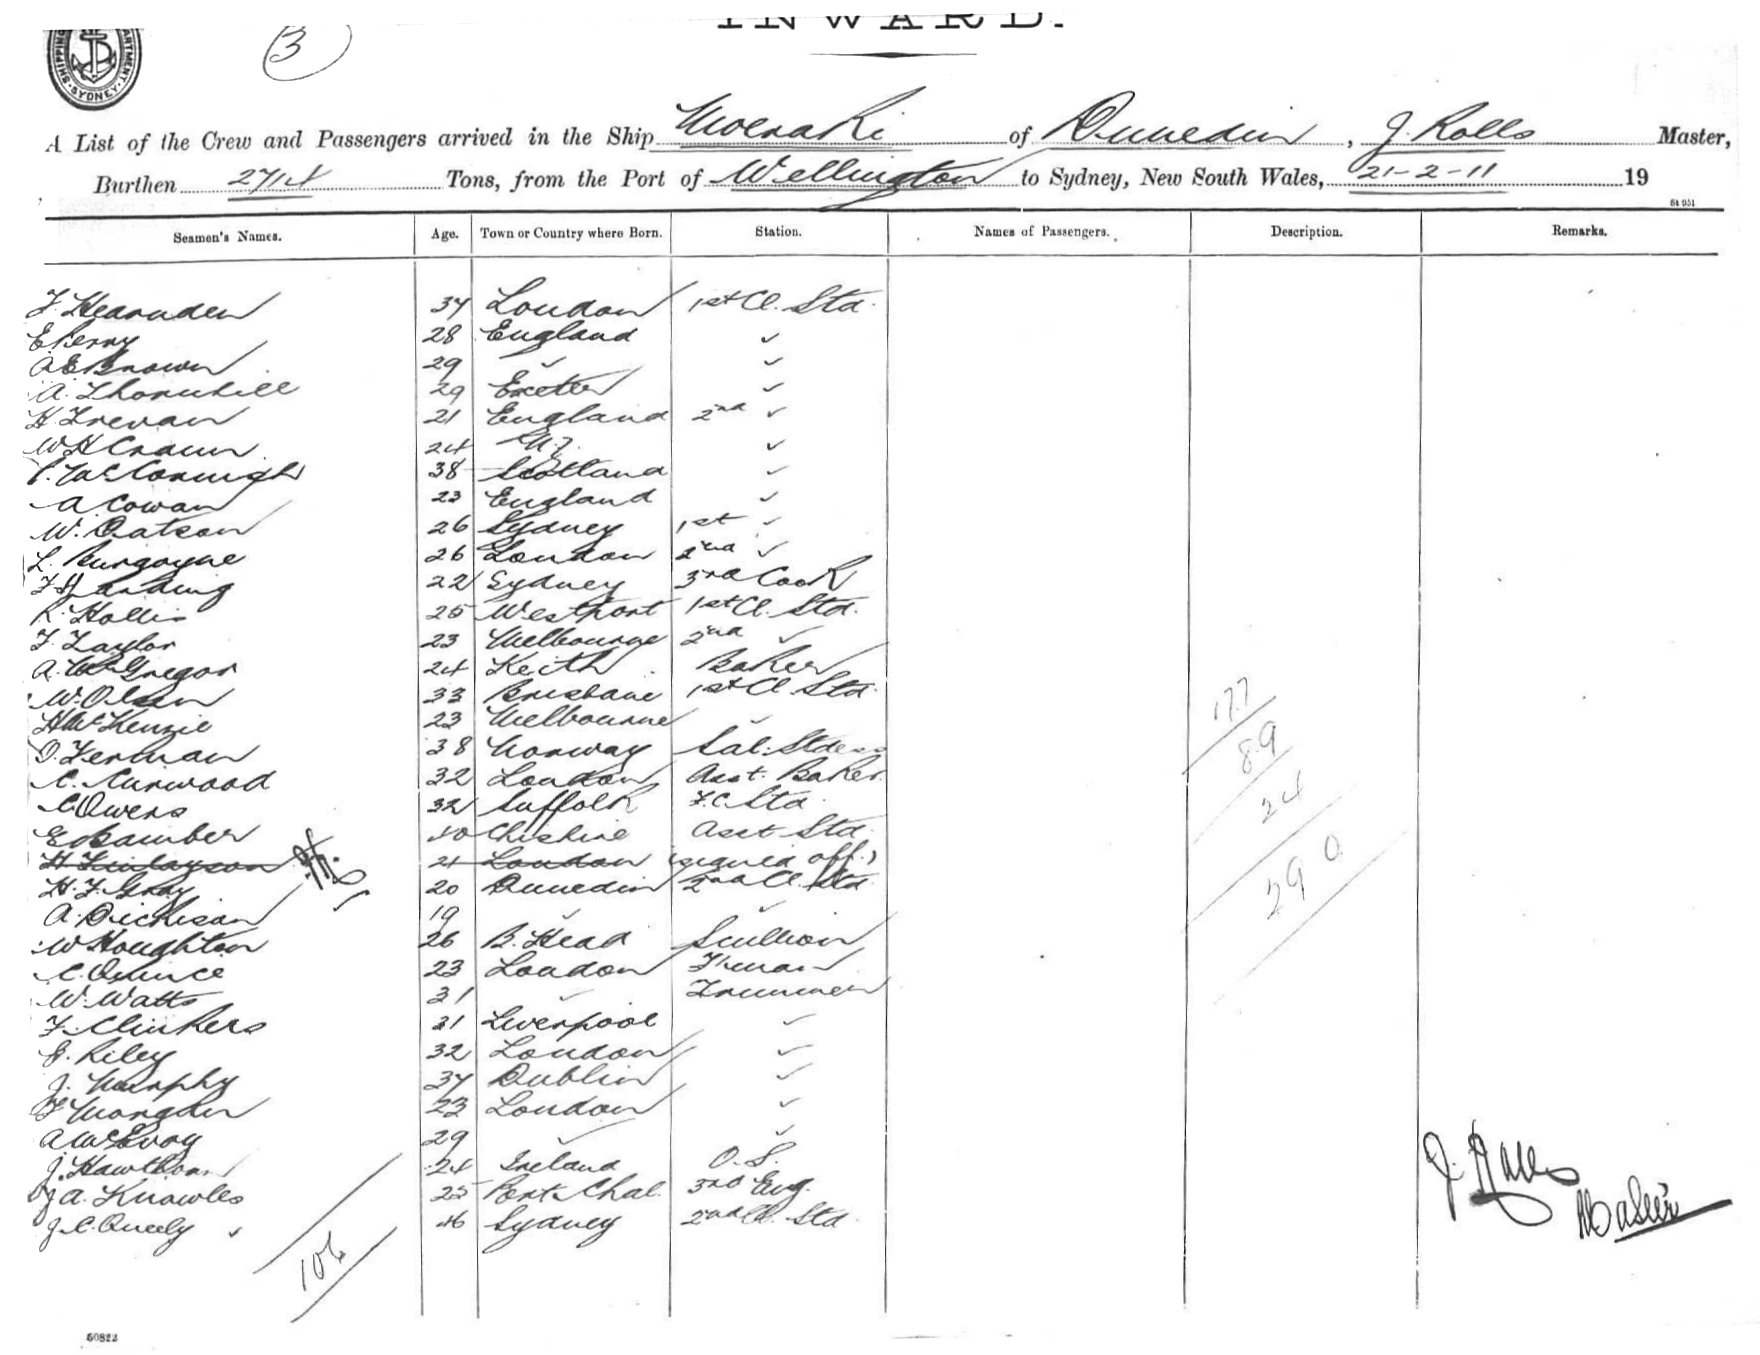 INWARD.
3
SYDNEY
A List of the Crew and Passengers arrived in the Ship Moeraki of Dunedin, J. Rolls Master,
Burthen 2714 Tons, from the Port of Wellington to Sydney, New South Wales, 21-2-11 19
St 951
Seamen's Names. Age. Town or Country where Born. Station. Names of Passengers. Description. Remarks.
F. Hearnden 37 London 1st Cl. Std.
E Perry 28 England ✓
A E Brown 29 ✓ ✓
A. Thornhill 29 Exeter ✓
H. Trevan 21 England 2nd ✓
W H Craun 24 N.Z. ✓
38 Scotland ✓
A. Cowan 23 England ✓
W. Watson 26 Sydney 1st ✓
L. Burgoyne 26 London 2nd ✓
F Harding 22 Sydney 3rd Cook
R. Hollis 25 Westport 1st Cl. Std.
F. Taylor 23 Melbourne 2nd ✓
A. McGregor 24 Keith Baker
W. Olsen 33 Brisbane 1st Cl Std.
H McKenzie 23 Melbourne ✓
O. Ferman 38 Norway Sal. Stdess
C. Curwood 32 London Asst. Baker.
C Owens 32 Suffolk F.C. Std.
E Bamber 40 Cheshire Asst Std.
H Finlayson 21 London (signed off.)
H. F. Gray 20 Dunedin 2nd Cl. Std.
A. Dickison 19 ✓ ✓
W Houghton 26 B. Head Scullion
C. Quince 23 London Fireman
W. Watts 31 ✓ Trimmer
F. Clinkers 31 Liverpool ✓
J. Riley 32 London ✓
J. Murphy 37 Dublin ✓
F Morgan 23 London ✓
A McEvoy 29 ✓ ✓
J. Hawthorn 24 Ireland O.S.
J A. Knowles 25 Port Chal. 3rd Eng.
J. C. Queely 46 Sydney 2nd Cl. Std.
177
89
24
290
106
J. Rolls
Master
50822